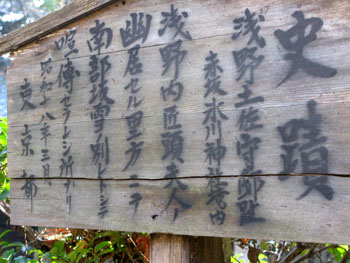 史蹟
浅野土佐守邸趾
赤坂氷川神社境内
浅野内匠頭夫人ノ
幽居セル里方ニテ
南部坂雪ノ別レトシテ
喧傳セラレシ所ナリ
昭和十八年三月
東京都